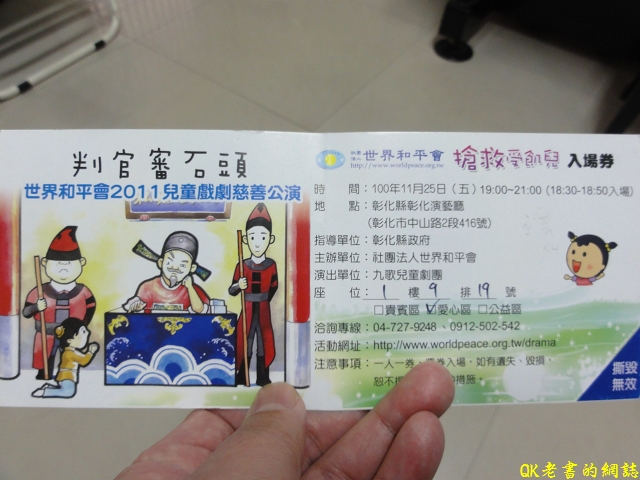 判官審石頭
世界和平會2011兒童戲劇慈善公演
世界和平會
http://www.worldpeace.org.tw
搶救受飢兒 入場券
時 間：100年11月25日（五）19:00~21:00 (18:30-18:50入場)
地 點：彰化縣彰化演藝廳
(彰化市中山路2段416號)
指導單位：彰化縣政府
主辦單位：社團法人世界和平會
演出單位：九歌兒童劇團
座 位：1 樓 9 排 19 號
□貴賓區 ☑愛心區 □公益區
洽詢專線：04-727-9248、0912-502-542
活動網址：http://www.worldpeace.org.tw/drama
注意事項：一人一券，入場，如有遺失、毀損，
恕不措施。
撕毀
無效
QK老書的網誌